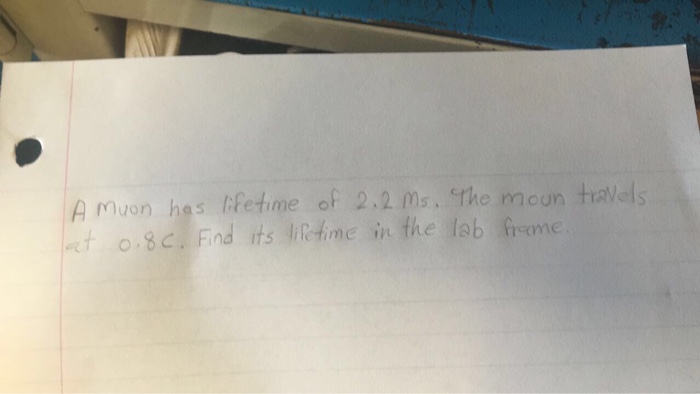 A Muon has lifetime of 2.2 Ms. The moun travels
at 0.8C. Find its lifetime in the lab frame.